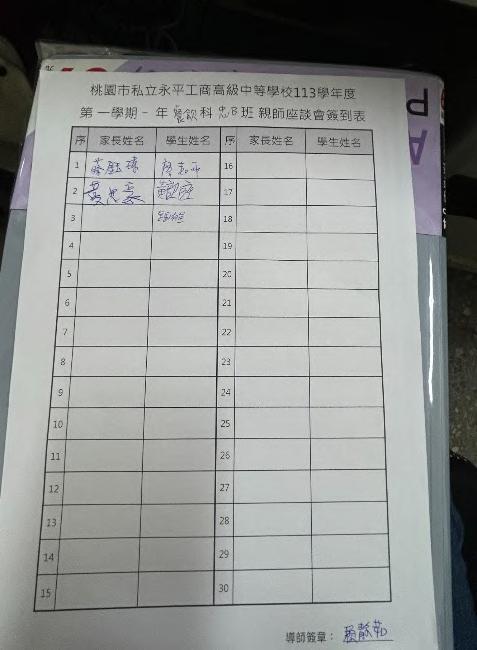 桃園市私立永平工商高級中等學校113學年度
第一學期一年餐飲科忠B班親師座談會簽到表
序 家長姓名 學生姓名 序 家長姓名 學生姓名
1 16
2 17
3 18
4 19
5 20
6 21
7 22
8 23
9 24
10 25
11 26
12 27
13 28
14 29
15 30
導師簽章：